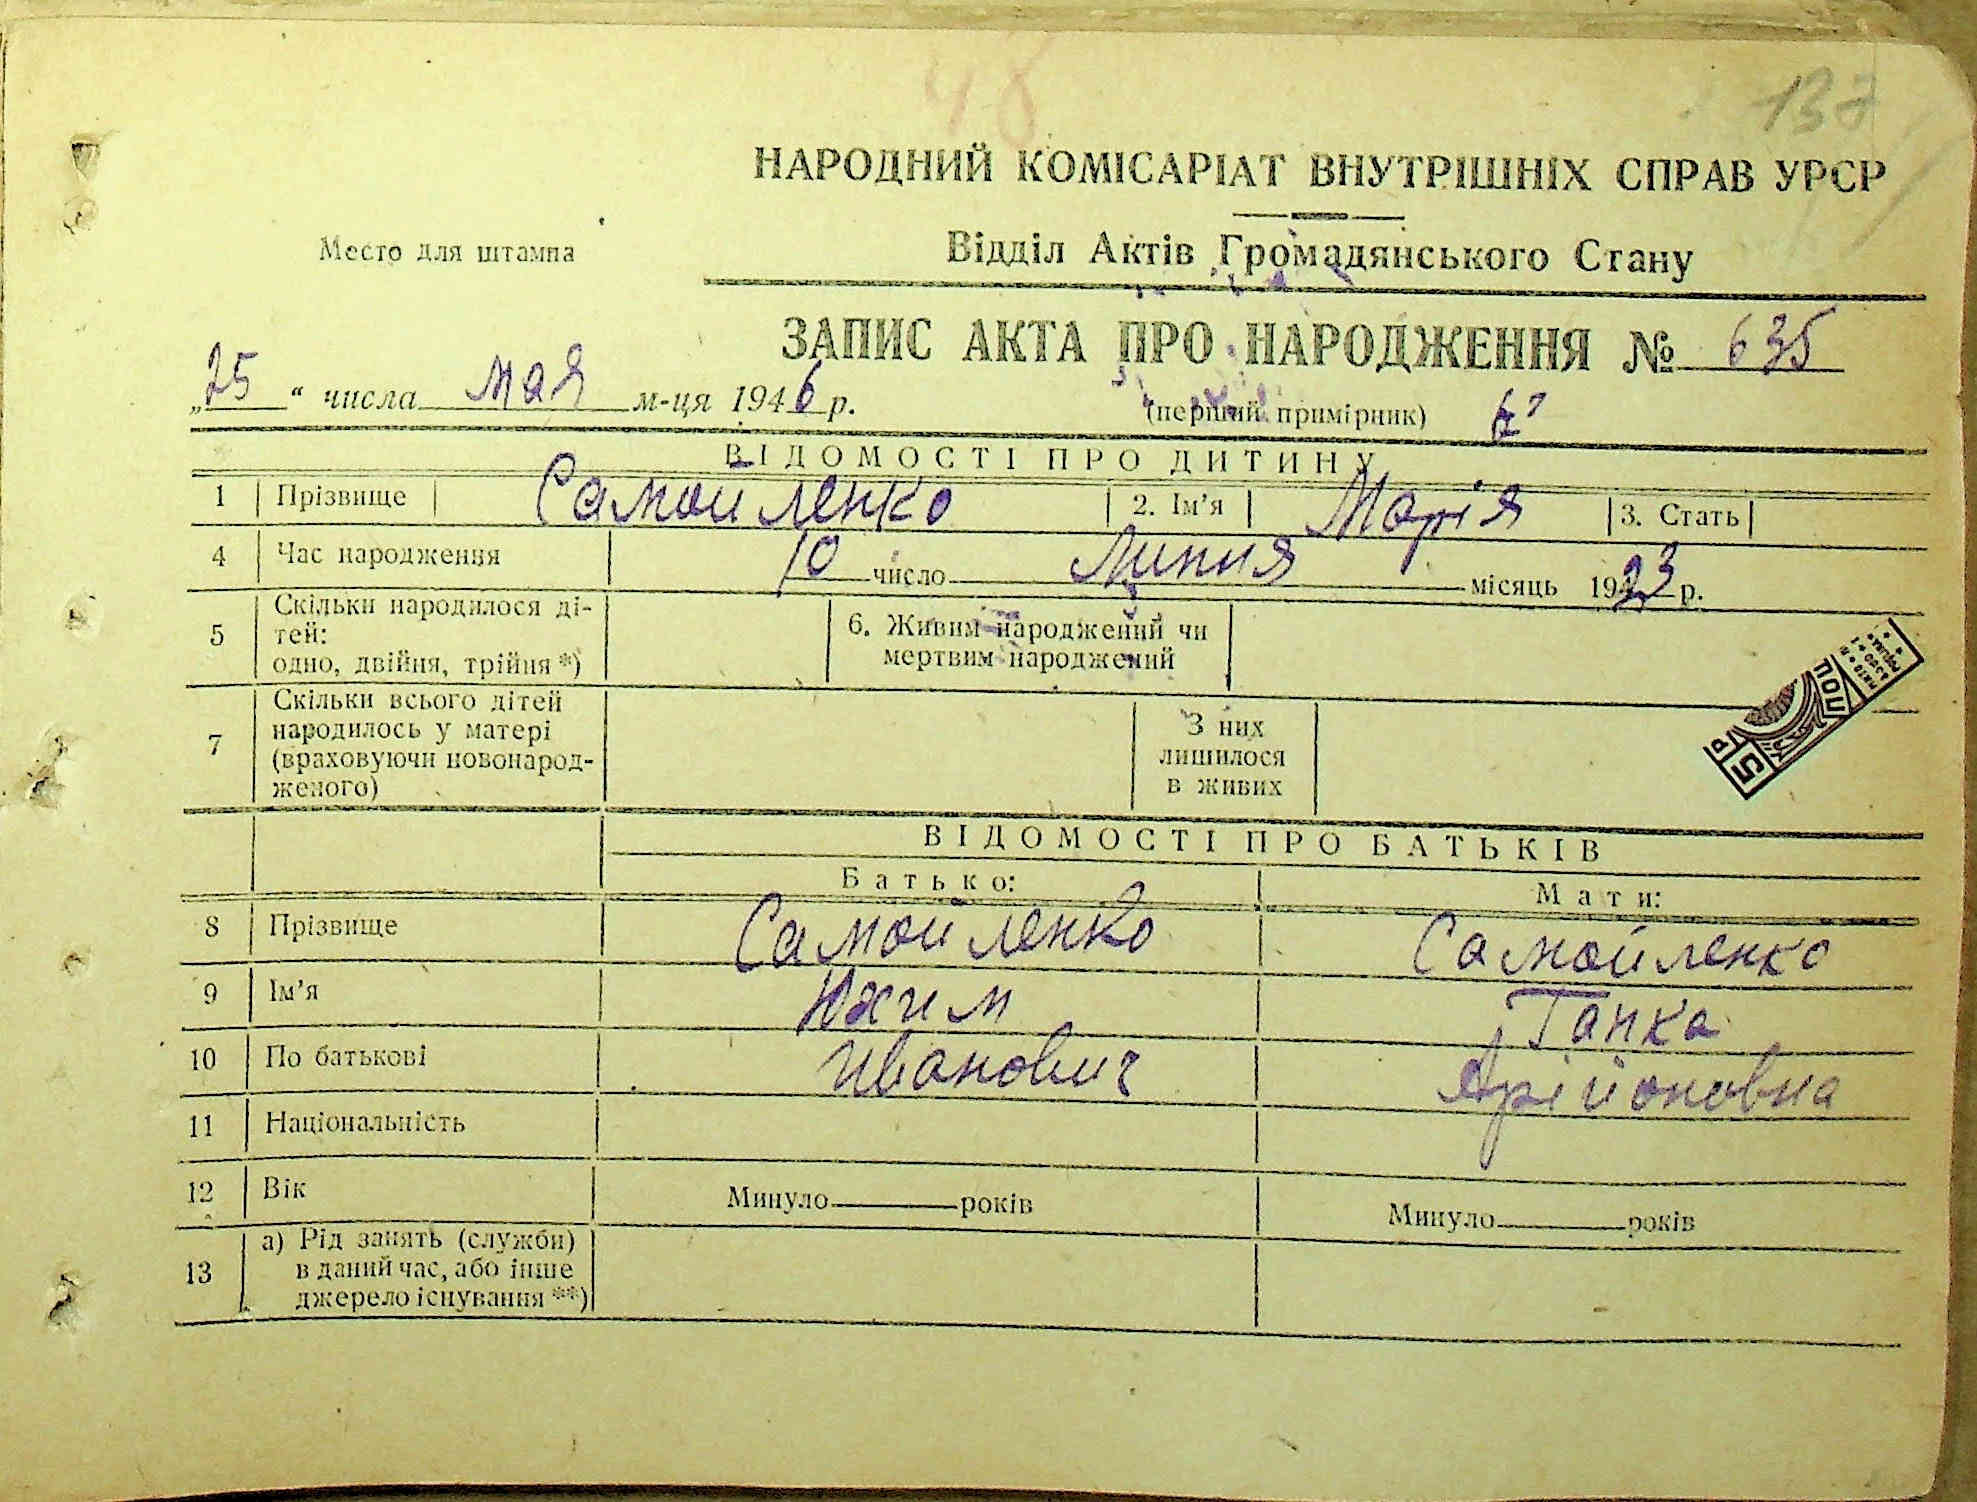 48
137
НАРОДНИЙ КОМІСАРІАТ ВНУТРІШНІХ СПРАВ УРСР
Место для штампа
Відділ Актів Громадянського Стану
ЗАПИС АКТА ПРО НАРОДЖЕННЯ № 635
„25“ числа мая м-ця 1946 р.
(перший примірник)
ВІДОМОСТІ ПРО ДИТИНУ
1 Прізвище Самойленко 2. Ім'я Марія 3. Стать
4 Час народження 10 число Липня місяць 1923 р.
5 Скільки народилося ді-
тей:
одно, двійня, трійня *)
6. Живим народжений чи
мертвим народжений
7 Скільки всього дітей
народилось у матері
(враховуючи новонарод-
женого)
З них
лишилося
в живих
5 ГР
ВІДОМОСТІ ПРО БАТЬКІВ
Батько: Мати:
8 Прізвище Самойленко Самойленко
9 Ім'я Юхим Ганка
10 По батькові Иванович
11 Національність
12 Вік Минуло років Минуло років
13 а) Рід занять (служби)
в даний час, або інше
джерело існування **)